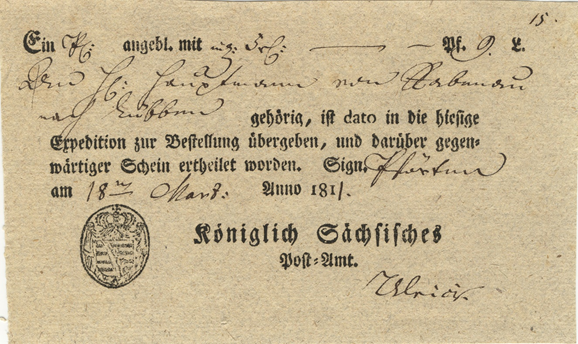 15.
Ein angebl. mit — — Pf. 9. L.
Hauptmann von Rabenau
nach Lübben gehörig, ist dato in die hiesige
Expedition zur Bestellung übergeben, und darüber gegen-
wärtiger Schein ertheilet worden. Sign. Pförten
am 18 Anno 1811.
Königlich Sächsisches
Post-Amt.
Ulrici